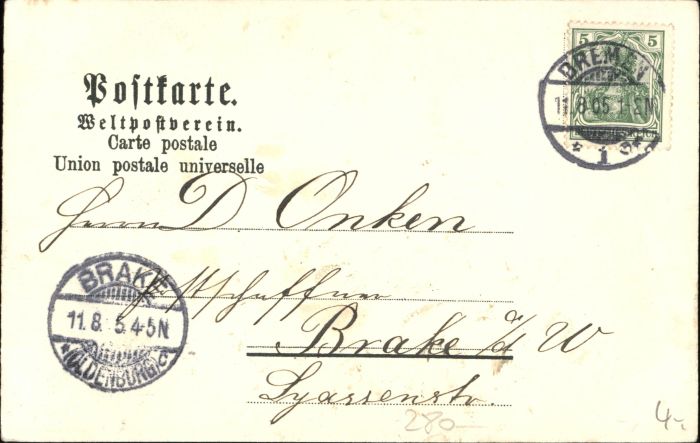 Postkarte.
Weltpostverein.
Carte postale
Union postale universelle
5 5
BREMEN
11.8.05.1-2N
* 1 c *
Herrn D Onken
Postschaffner
Brake a/d W
Lyassenstr.
BRAKE
11.8. 5.4-5N
* (OLDENBURG) c
280-
4,-